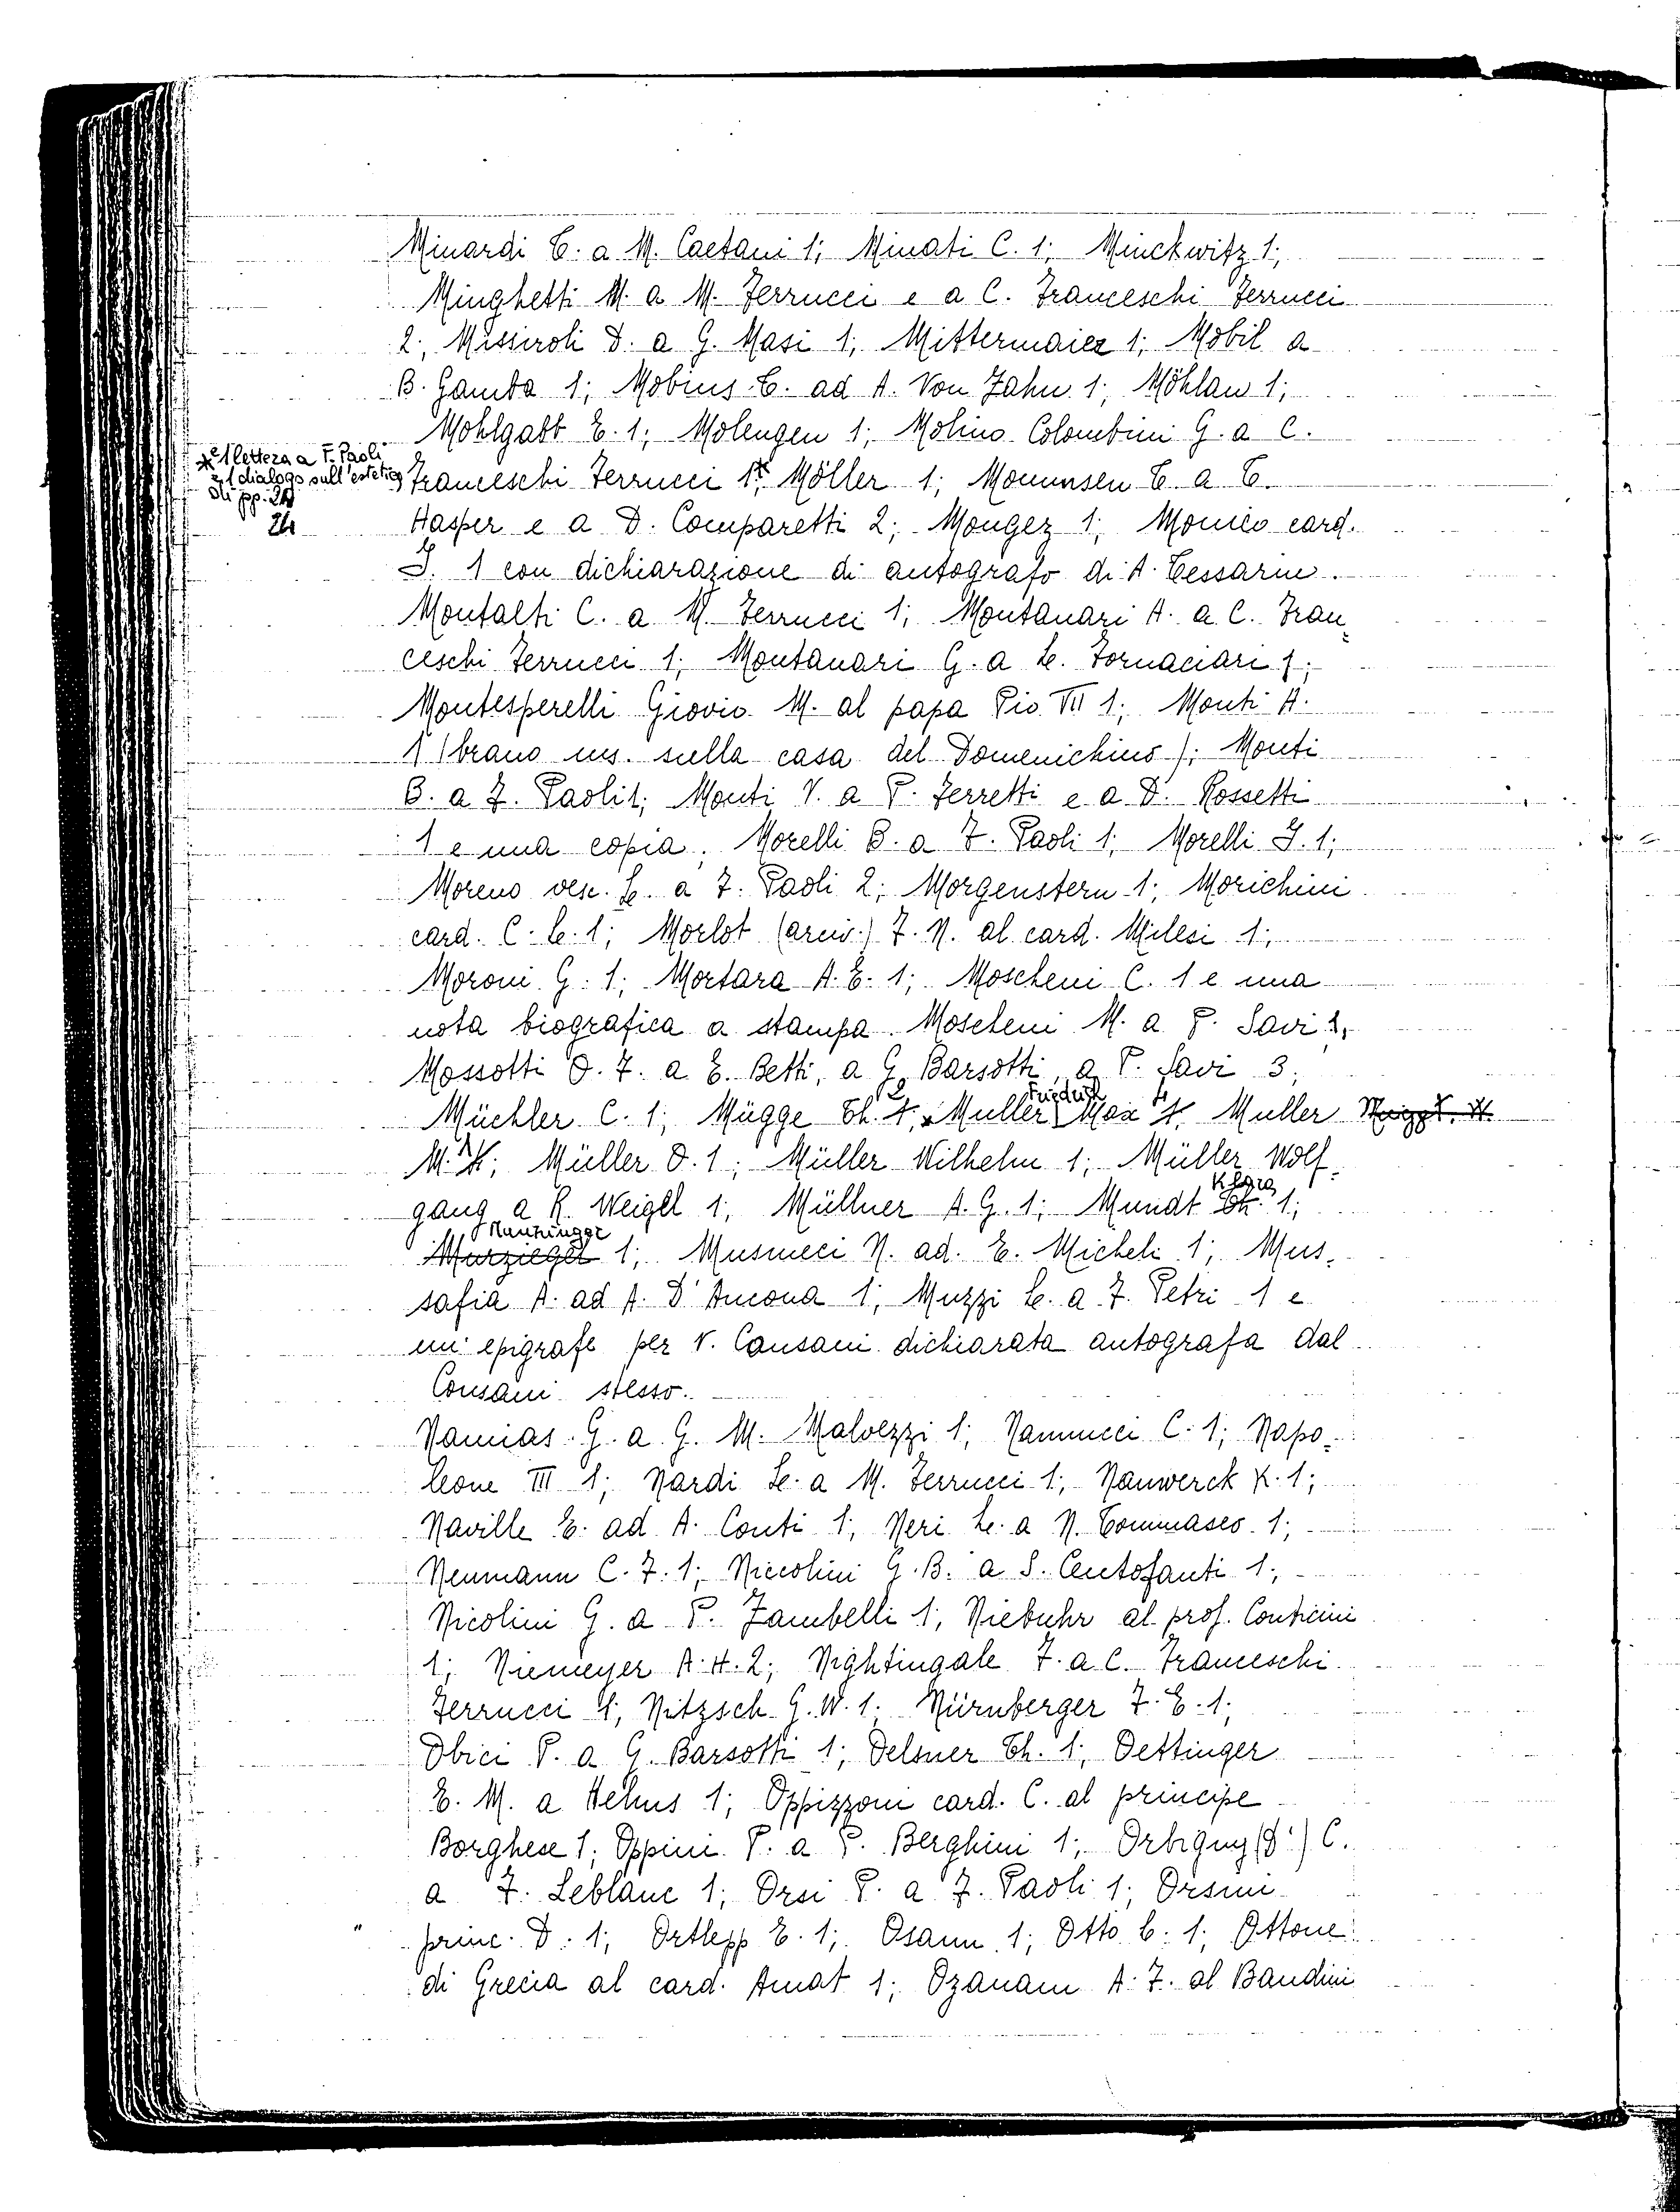 Minardi T. a M. Caetani 1; Minati C. 1; Minckwitz 1;
Minghetti M. a M. Ferrucci e a C. Franceschi Ferrucci
2; Missiroli D. a G. Masi 1; Mittermaier 1; Mobil a
B. Gamba 1; Mobius T. ad A. Von Zahn 1; Möhlau 1;
Mohlgabt E. 1; Molengen 1; Molino Colombini G. a C.
*e 1 lettera a F. Paoli
e 1 dialogo sull'estetica
di pp. 24
24
Franceschi Ferrucci 1* Möller 1; Mommsen T. a T.
Hasper e a D. Comparetti 2; Mongez 1; Monico card.
J. 1 con dichiarazione di autografo di A. Tessarin.
Montalti C. a M. Ferrucci 1; Montanari A. a C. Fran
ceschi Ferrucci 1; Montanari G. a L. Fornaciari 1;
Montesperelli Giovio M. al papa Pio VII 1; Monti A.
1 (brano ms. sulla casa del Domenichino); Monti
B. a F. Paoli 1; Monti V. a P. Ferretti e a D. Rossetti
1 e una copia; Morelli B. a F. Paoli 1; Morelli J. 1;
Moreno vesc. L. a F. Paoli 2; Morgenstern 1; Morichini
card. C. L. 1; Morlot (arciv.) F. N. al card. Milesi 1;
Moroni G. 1; Mortara A. E. 1; Moscheni C. 1 e una
nota biografica a stampa. Moscheni M. a P. Savi 1,
Mossotti O. F. a E. Betti, a G. Barsotti, a P. Savi 3;
Müchler C. 1; Mügge Th. 2 Muller Friedrich Max 4 Muller
M. H; Müller O. 1; Müller Wilhelm 1; Müller Wolf-
gang a R. Weigel 1; Müllner A. G. 1; Mundt Klara Th. 1;
Munzinger Murziegel 1; Musmeci N. ad. E. Micheli 1; Mus-
safia A. ad A. D'Ancona 1; Muzzi L. a F. Petri 1 e
un' epigrafe per V. Consani dichiarata autografa dal
Consani stesso.
Namias G. a G. M. Malvezzi 1; Nannucci C. 1; Napo-
leone III 1; Nardi L. a M. Ferrucci 1; Nauwerck K. 1;
Naville E. ad A. Conti 1; Neri L. a N. Tommaseo 1;
Neumann C. F. 1; Niccolini G. B. a S. Centofanti 1;
Nicolini G. a P. Zambelli 1; Niebuhr al prof. Conticini
1; Niemeyer A. H. 2; Nightingale F. a C. Franceschi
Ferrucci 1; Nitzsch G. W. 1; Nürnberger F. E. 1;
Obici P. a G. Barsotti 1; Oelsner Th. 1; Oettinger
E. M. a Helius 1; Oppizzoni card. C. al principe
Borghese 1; Oppini P. a P. Berghini 1; Orbigny (d') C.
a F. Leblanc 1; Orsi P. a F. Paoli 1; Orsini
princ. D. 1; Ortlepp E. 1; Osann 1; Otto L. 1; Ottone
di Grecia al card. Amat 1; Ozanam A. F. al Bandini